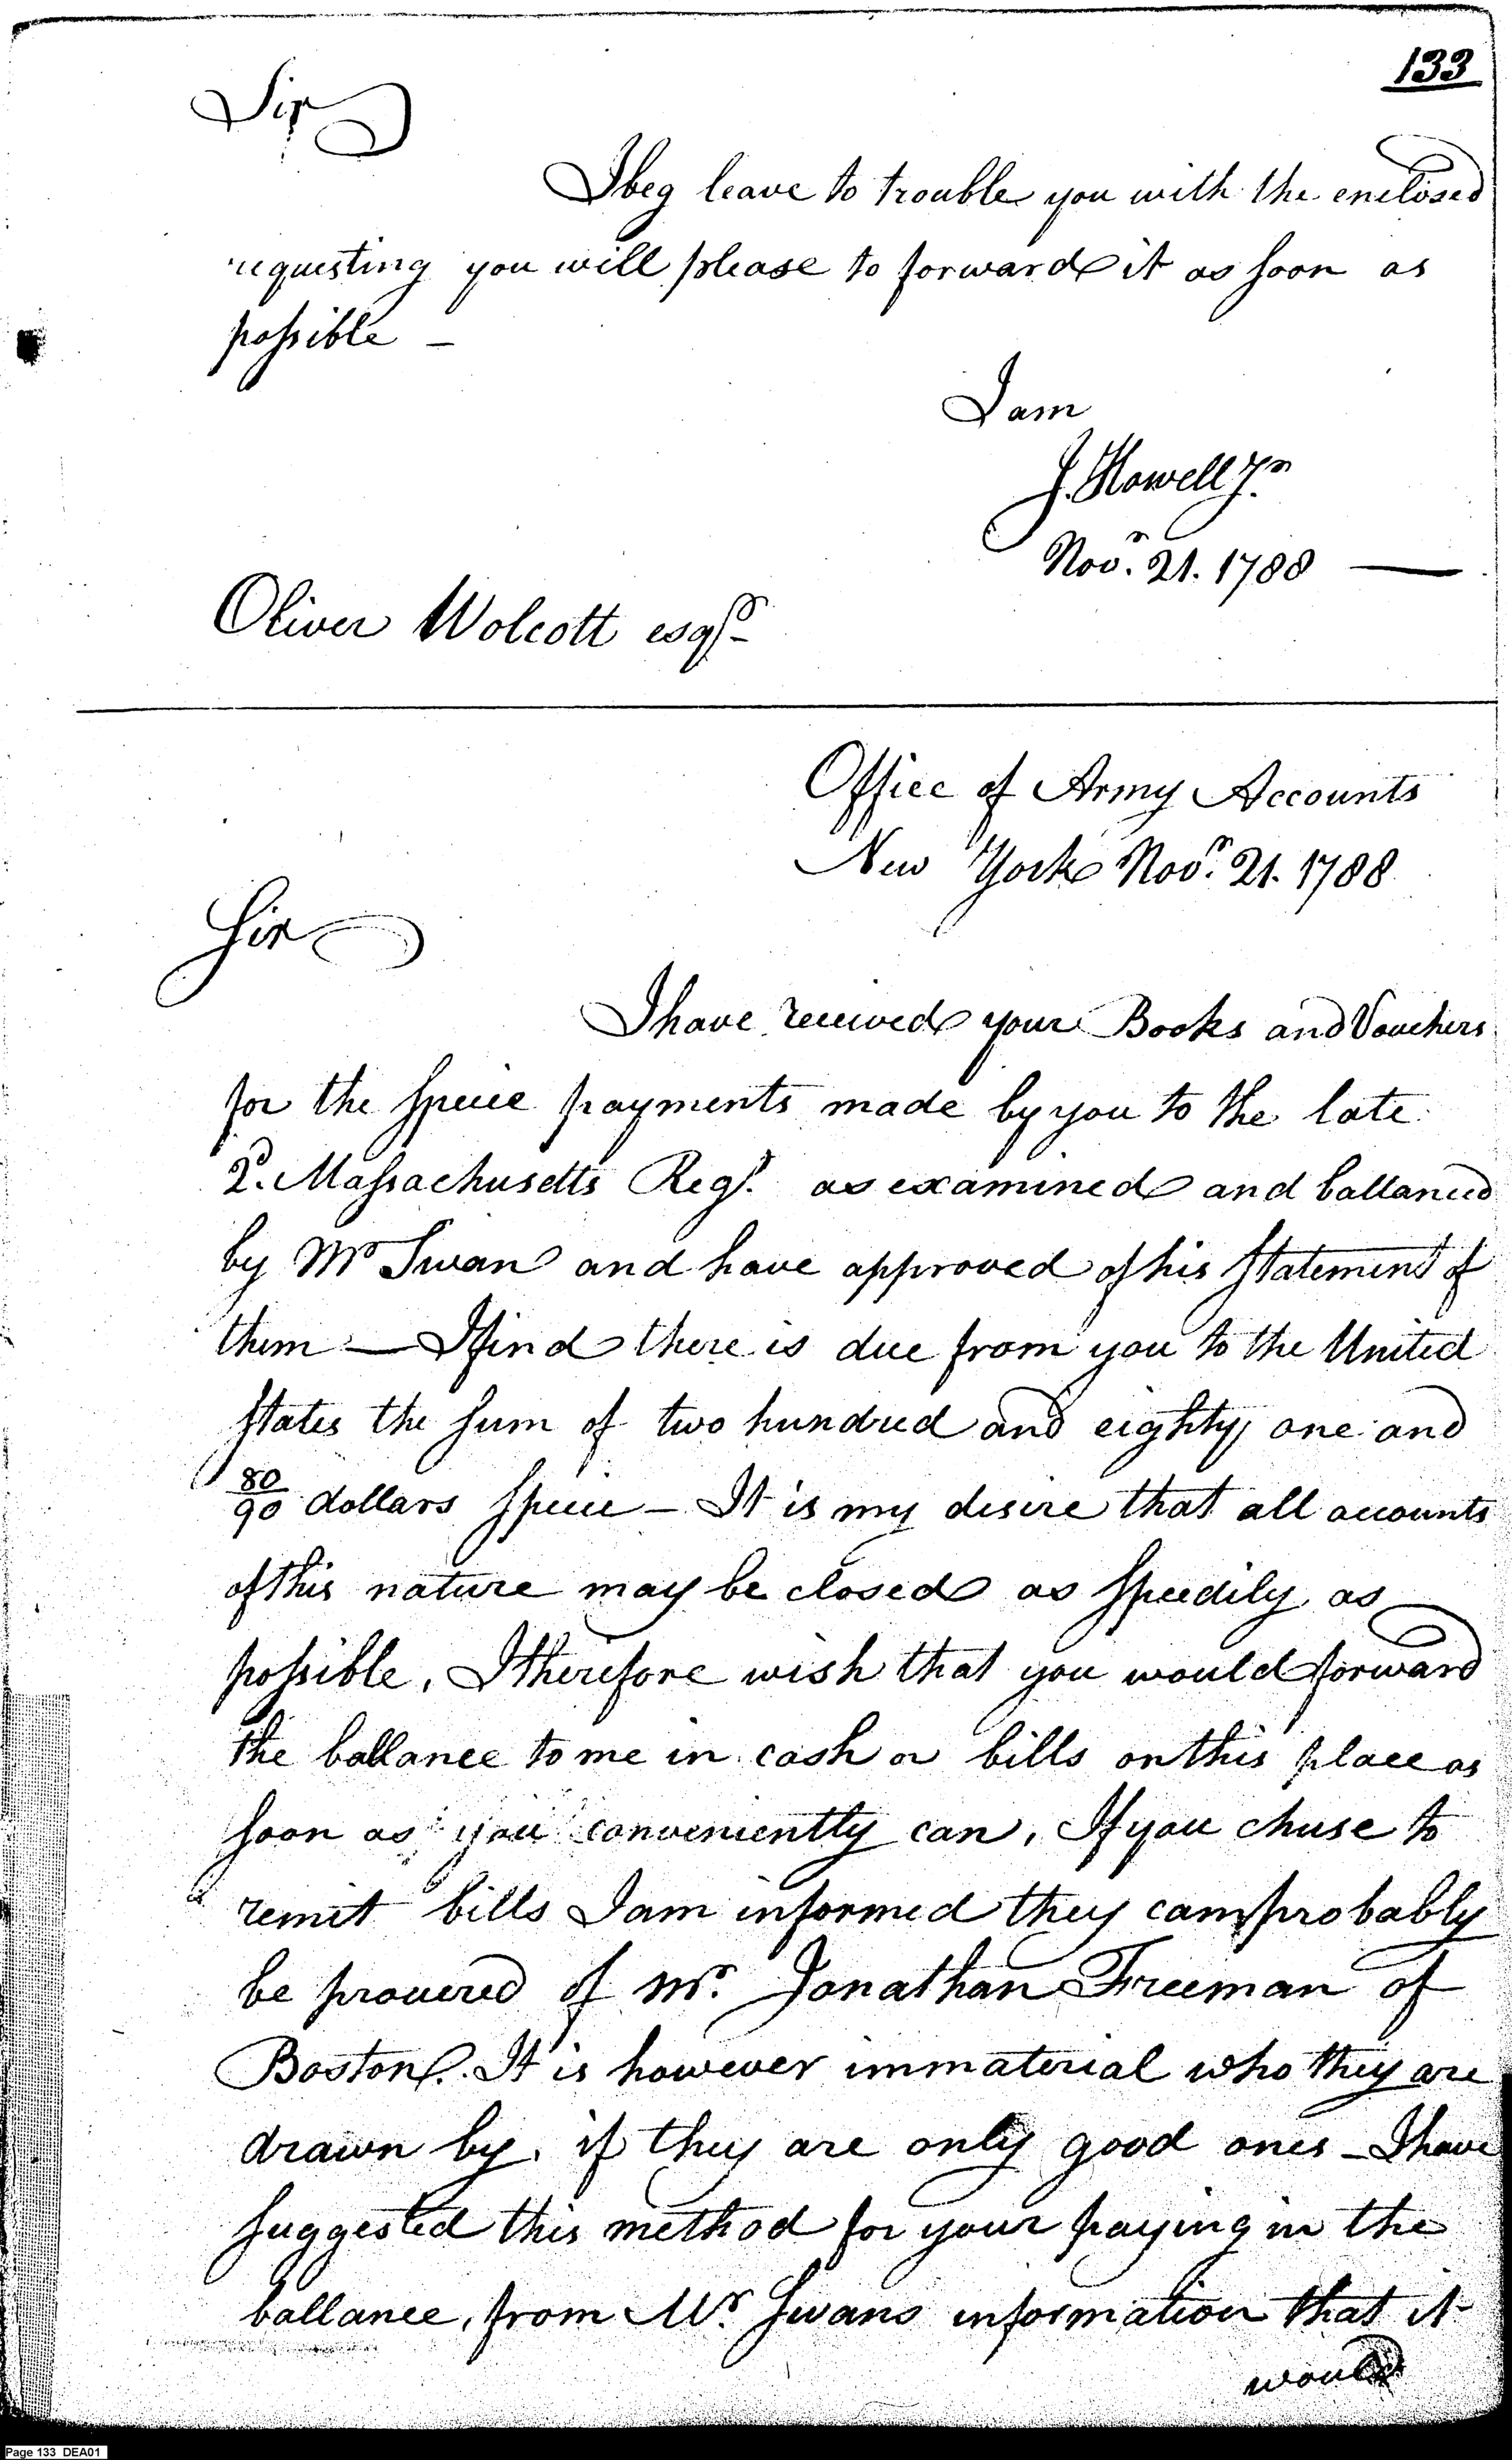 133
Sir
I beg leave to trouble you with the enclosed
requesting you will please to forward it as soon as
possible —
I am
J. Howell Jr.
Novr. 21. 1788 —
Oliver Wolcott esqr.
Office of Army Accounts
New York Novr. 21. 1788
Sir
I have received your Books and Vouchers
for the specie payments made by you to the late
2d. Massachusetts Regt. as examined and ballanced
by Mr Swan and have approved of his statement of
them — I find there is due from you to the United
States the sum of two hundred and eighty one and
80/90 dollars specie — It is my desire that all accounts
of this nature may be closed as speedily as
possible, I therefore wish that you would forward
the ballance to me in cash or bills on this place as
soon as you conveniently can, If you chuse to
remit bills I am informed they can probably
be procured of Mr. Jonathan Freeman of
Boston. It is however immaterial who they are
drawn by, if they are only good ones — I have
suggested this method for your paying in the
ballance, from Mr. Swans information that it
would
Page 133 DEA01